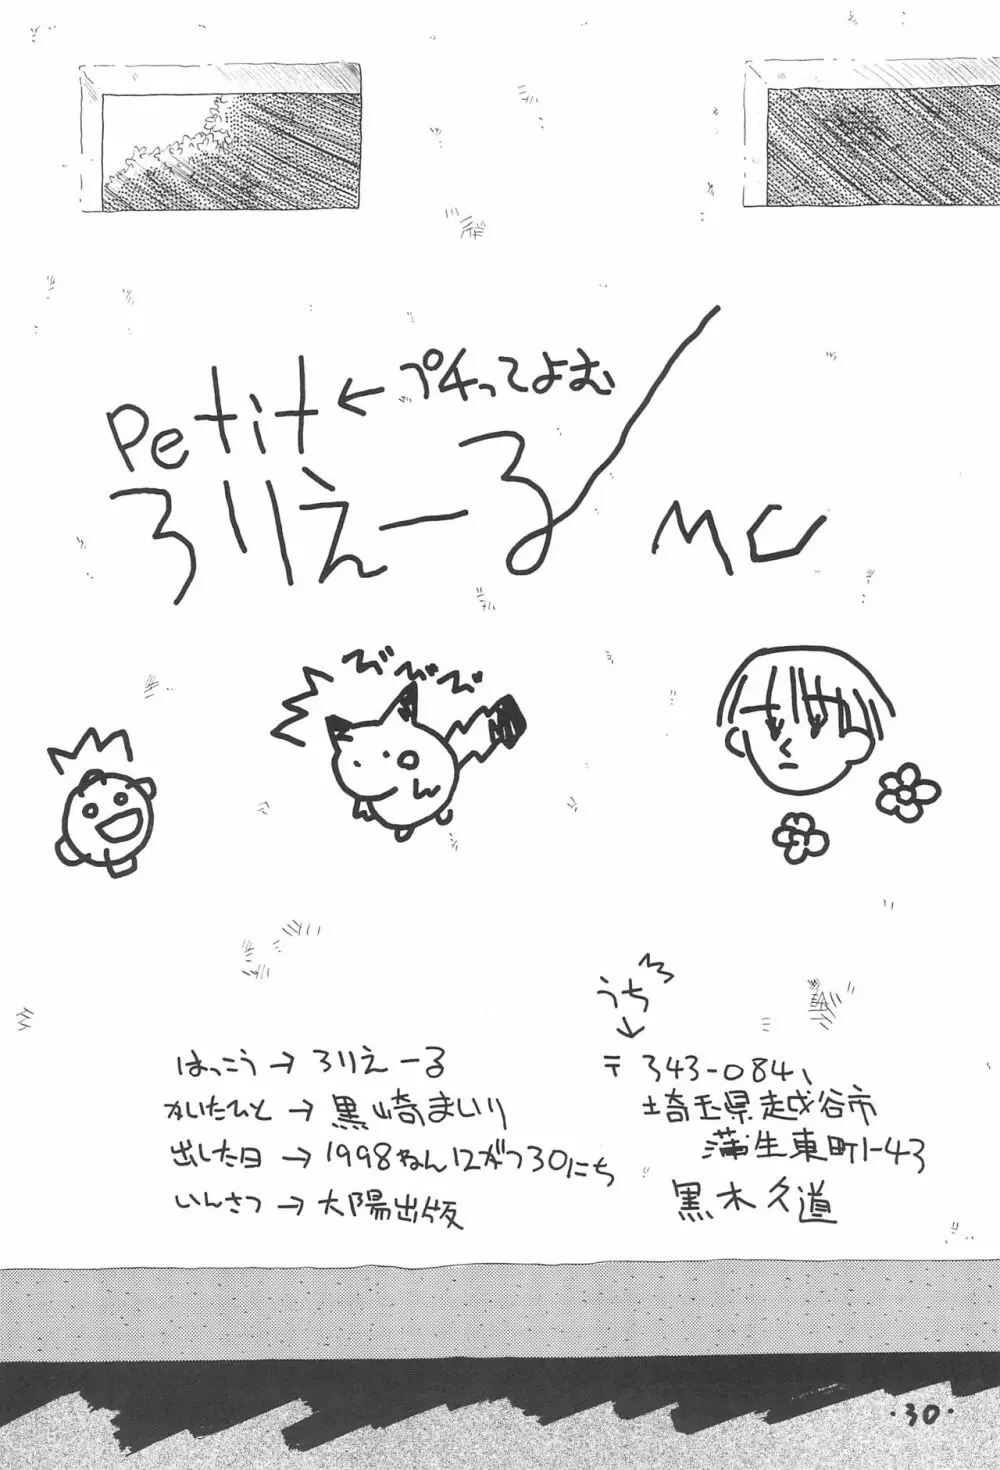 Petit ← プチってよむ
ろりえーる MC
びびび
うち
↓
はっこう → ろりえーる
かいたひと → 黒崎まいり
出した日 → 1998ねん12がつ30にち
いんさつ → 大陽出版
〒343-0841
埼玉県越谷市
蒲生東町1-43
黒木久道
・30・